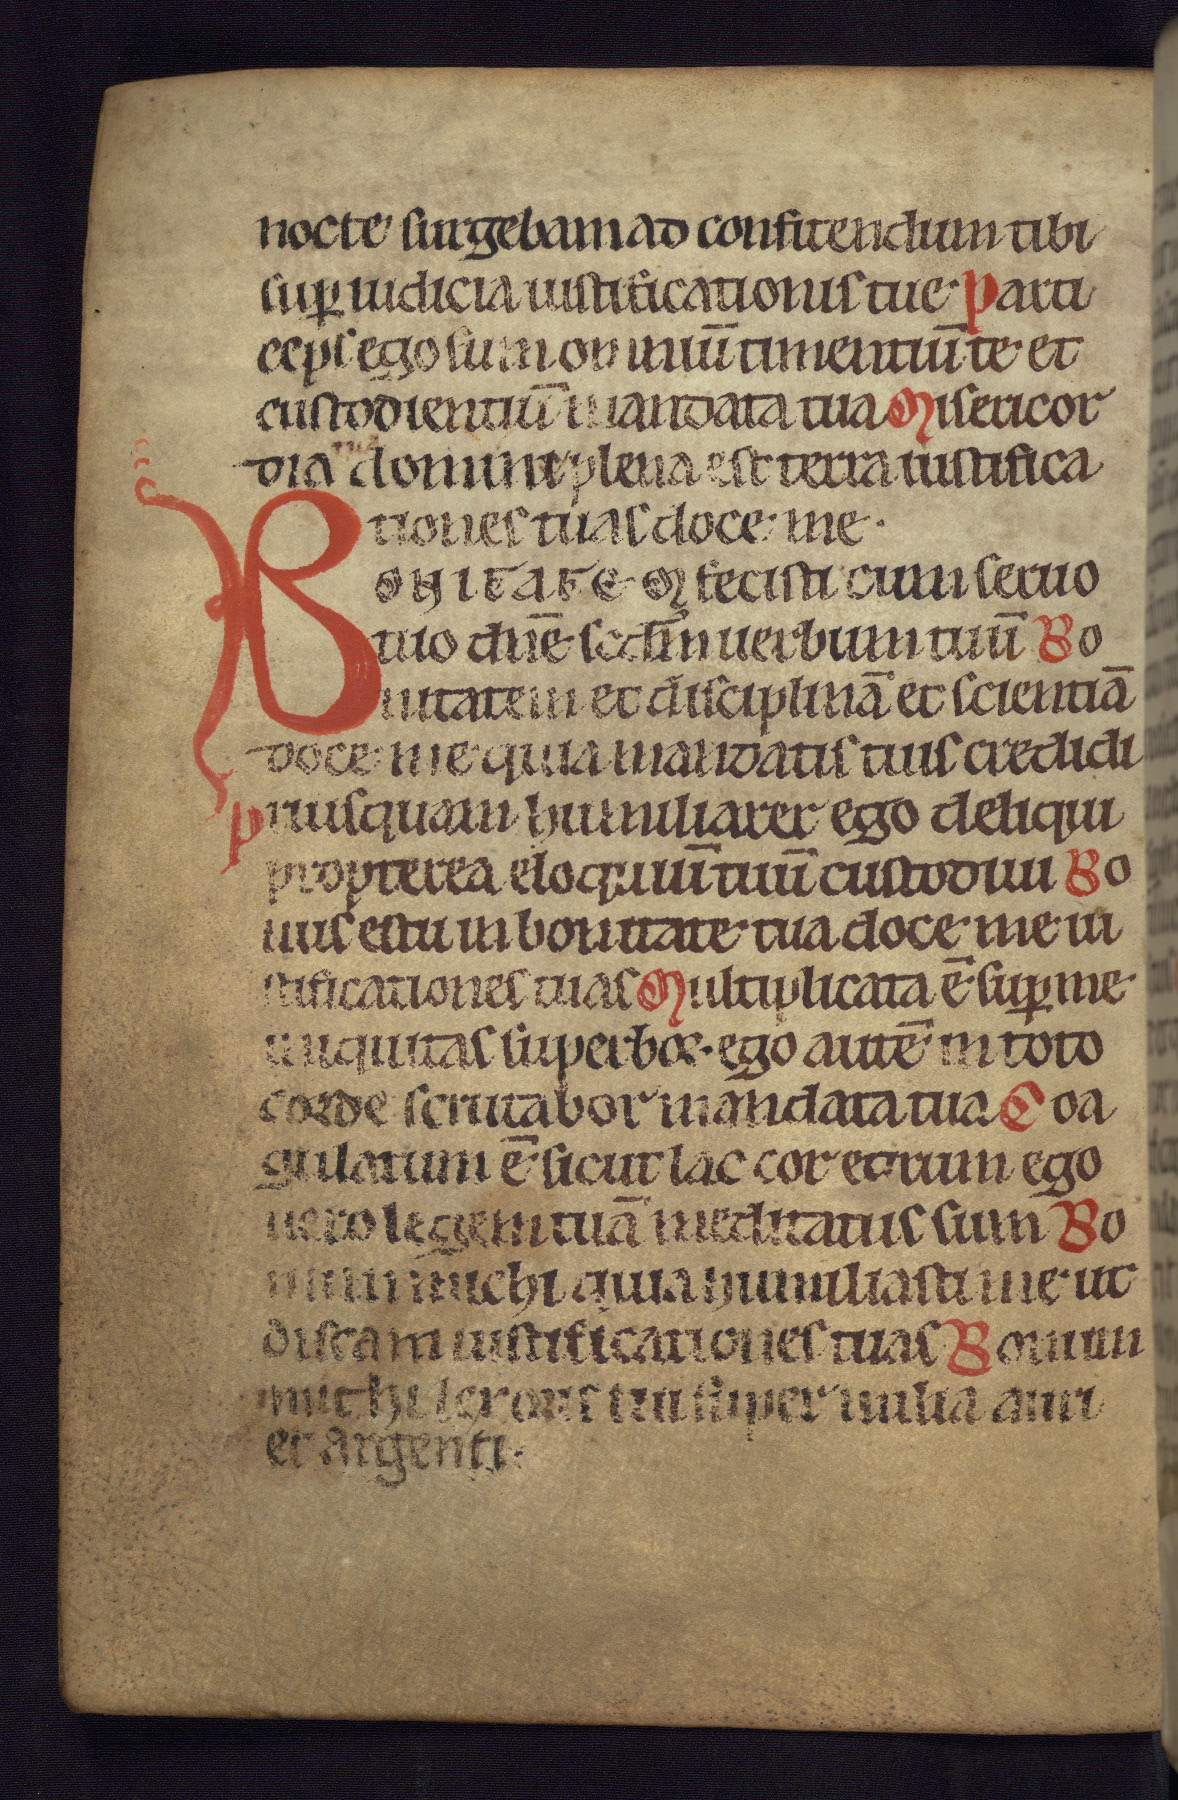 nocte surgebam ad confitendum tibi
sup iudicia iustificationis tue. Parti
ceps ego sum omniū timentiū te et
custodientiū mandata tua Misericor
dia tua domine plena est terra iustifica
tiones tuas doce me.
BONITATEM fecisti cum seruo
tuo dn̄e scdm̄ uerbum tuū Bo
nitatem et disciplinā et scientiā
doce me quia mandatis tuis credidi
Priusquam humiliarer ego deliqui
propterea eloquiū tuū custodiui Bo
nus es tu in bonitate tua doce me iu
stificationes tuas Multiplicata ē sup me
iniquitas superboꝝ. ego autē in toto
corde scrutabor mandata tua Coa
gulatum ē sicut lac cor eorum ego
uero legem tuā meditatus sum Bo
num michi quia humiliasti me ut
discam iustificationes tuas Bonum
michi lex oris tui super milia auri
et argenti.